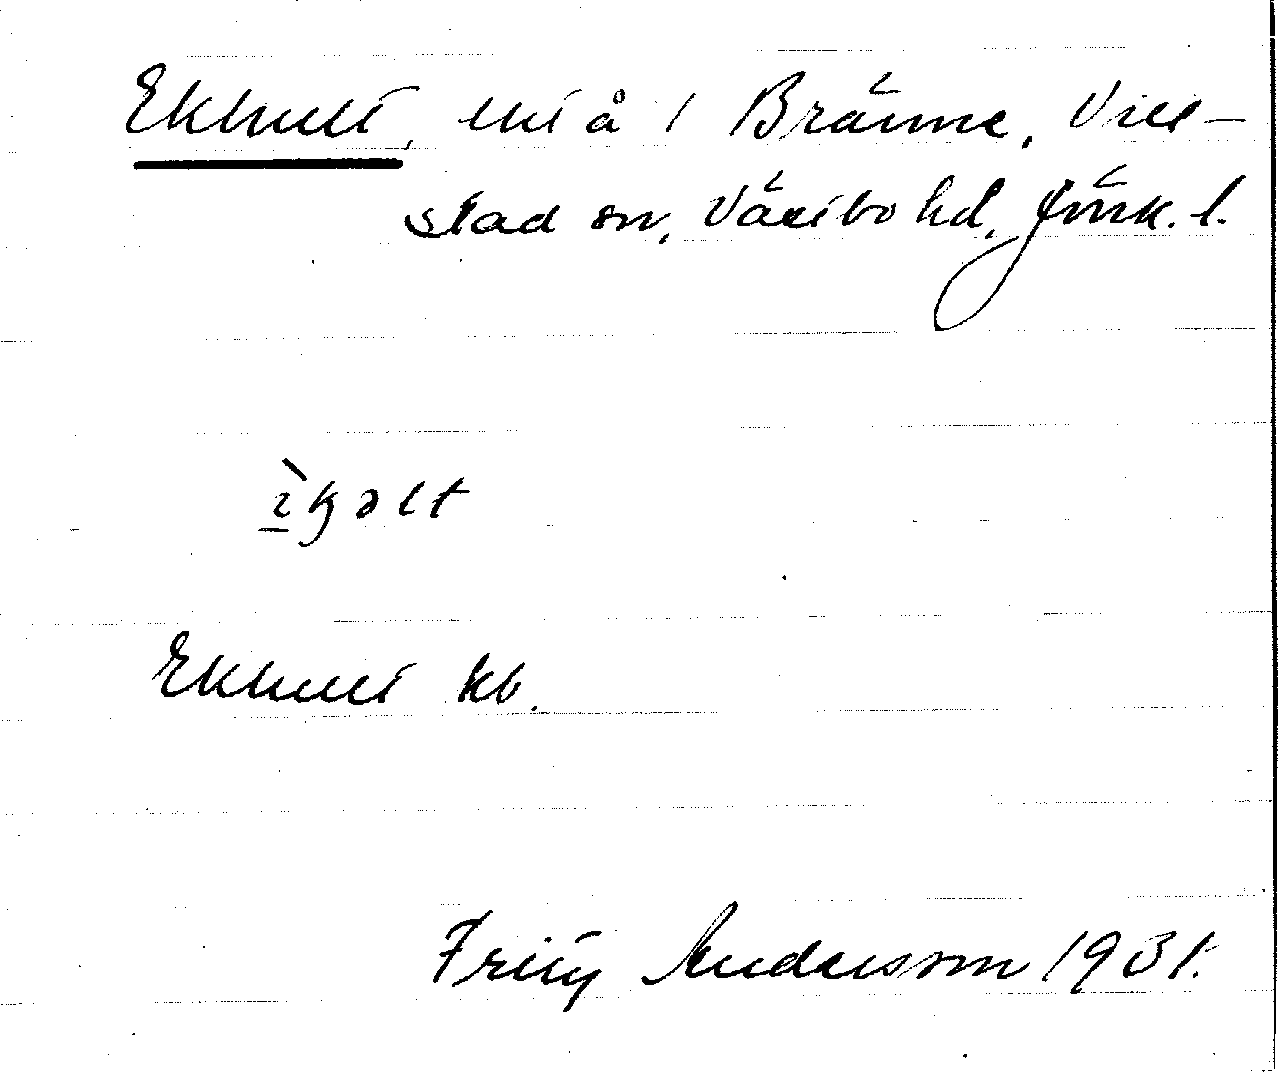 Ekhult, utj å 1 Bränne, Vill-
stad sn, Västbo hd, Jönk. l.
ìkəlt
Ekhult kb.
Fritz Andersson 1931.